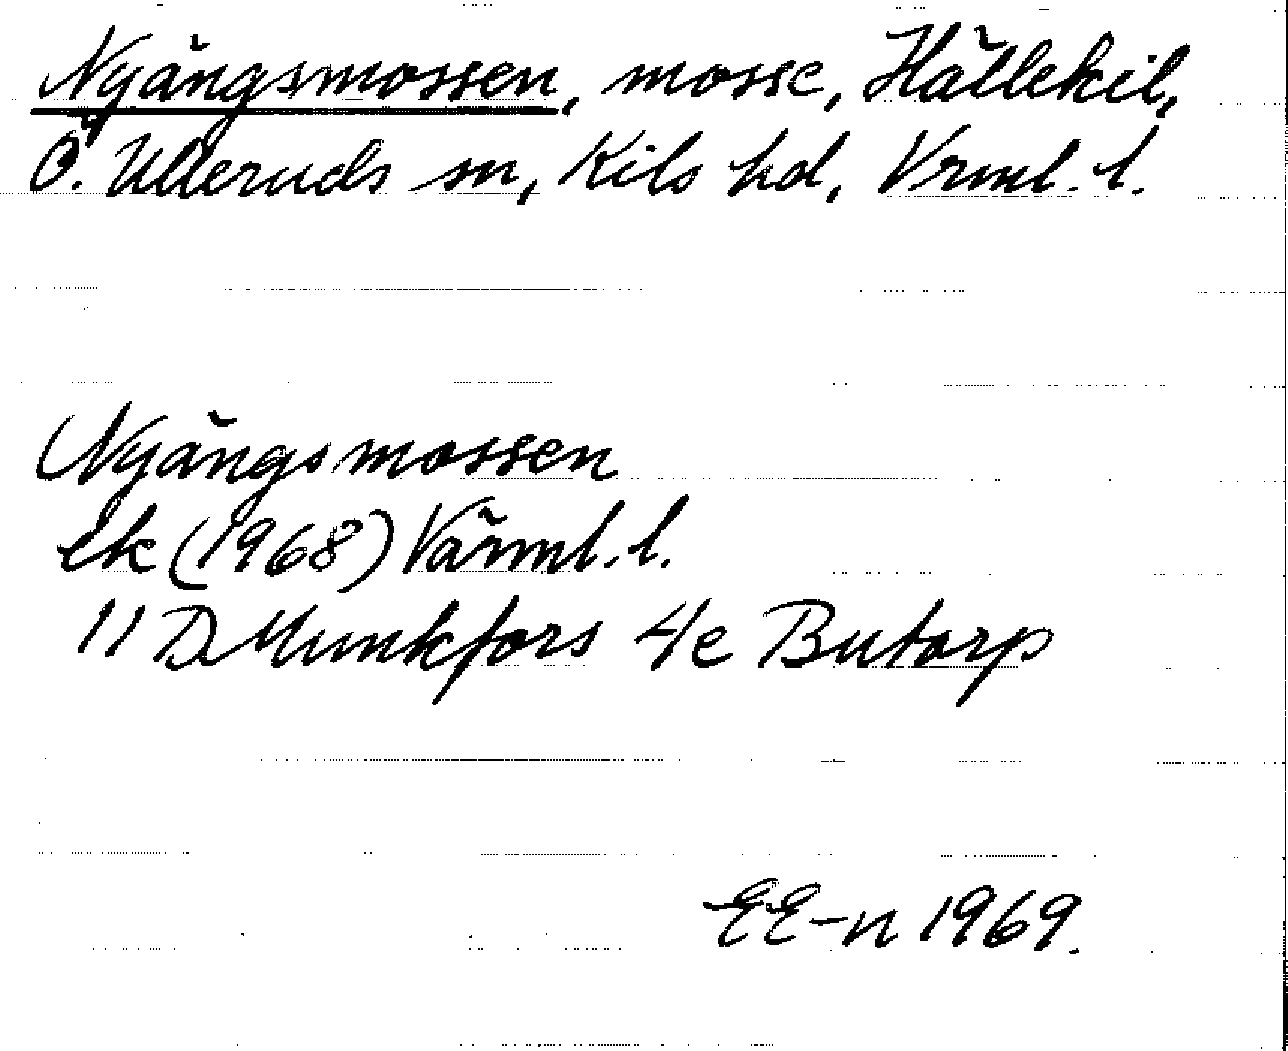 Nyängsmossen, mosse, Hällekil,
Ö. Ulleruds sn, Kils hd, Vrml. l.
Nyängsmossen
Ek (1968) Värml. l.
11 D Munkfors 4e Butorp
EE-n 1969.